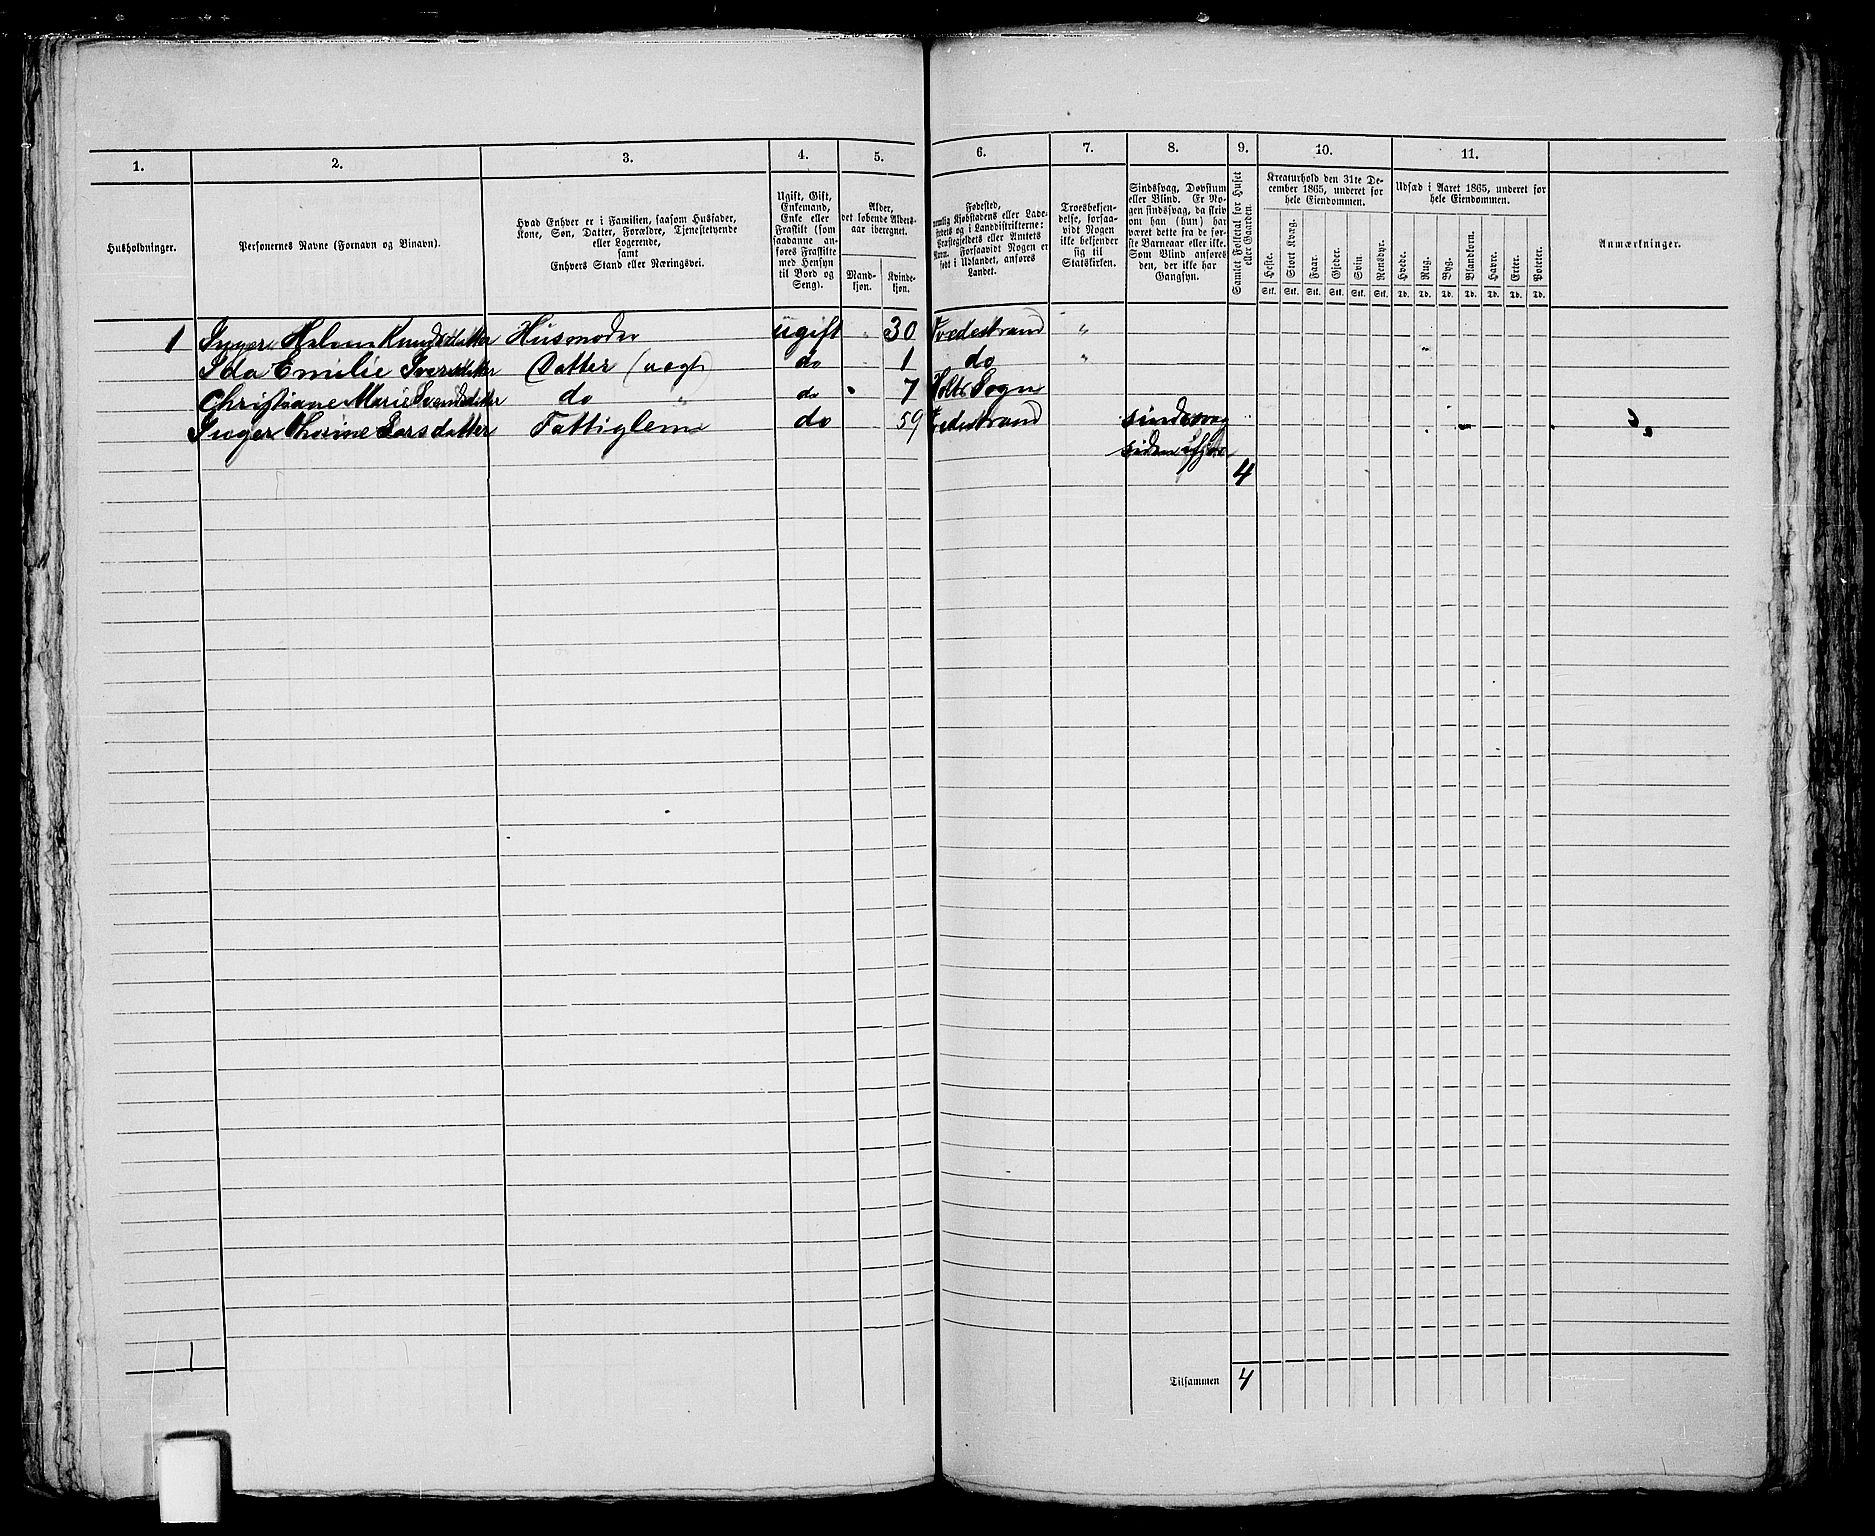 1. 2. 3. 4. 5. 6. 7. 8. 9. 10. 11.
Husholdninger.
Personernes Navne (Fornavn og Binavn).
Hvad Enhver er i Familien, saasom Husfader,
Kone, Søn, Datter, Forældre, Tjenestetyende
eller Logerende,
samt
Enhvers Stand eller Næringsvei.
Ugift, Gift,
Enkemand,
Enke eller
Fraskilt (som
saadanne an-
føres Fraskilte
med Hensyn
til Bord og
Seng).
Alder,
det løbende Alders-
aar iberegnet.
Mand-
kjøn.
Kvinde-
kjøn.
Fødested,
nemlig Kjøbstadens eller Lade-
stedets og i Landdistrikterne:
Præstegjeldets eller Amtets
Navn. Forsaavidt Nogen er
født i Udlandet, anføres
Landet.
Troesbekjen-
delse, forsaa-
vidt Nogen
ikke bekjender
sig til
Statskirken.
Sindssvag, Døvstum
eller Blind. Er No-
gen sindssvag, da skriv
om han (hun) har
været dette fra de før-
ste Barneaar eller ikke.
Som Blind anføres
den, der ikke har
Gangsyn.
Samlet Folketal for Huset
eller Gaarden.
Kreaturhold den 31te De-
cember 1865, underet for
hele Eiendommen.
Heste. Stort Kvæg. Faar. Gjeder. Svin. Rensdyr.
Stk. Stk. Stk. Stk. Stk. Stk.
Udsæd i Aaret 1865, underet for
hele Eiendommen.
Hvede. Rug. Byg. Blandkorn. Havre. Erter. Poteter.
Td. Td. Td. Td. Td. Td. Td.
Anmærkninger.
1 Inger Helene Knudsdatter Husmoder ugift " 30 Tvedestrand "
Ida Emilie Iversdatter Datter (uægt) do 1 do "
Christiane Marie Svendsdatter do " do 7 Holts Sogn
Inger Thorine Larsdatter Fattiglem do 59 Tvedestrand sindssvag
siden
4
Tilsammen 4